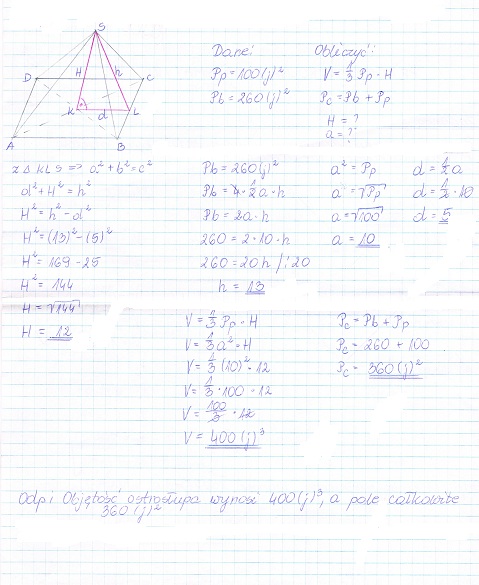 S
D H h C
K d L
A B
Dane:
Pp = 100 (j)²
Pb = 260 (j)²
Obliczyć:
V = 1/3 Pp · H
Pc = Pb + Pp
H = ?
a = ?
z Δ KLS => a² + b² = c²
d² + H² = h²
H² = h² - d²
H² = (13)² - (5)²
H² = 169 - 25
H² = 144
H = √144
H = 12
Pb = 260 (j)²
Pb = 4 · 1/2 a · h
Pb = 2a · h
260 = 2 · 10 · h
260 = 20 h /: 20
h = 13
a² = Pp
a = √Pp
a = √100
a = 10
d = 1/2 a
d = 1/2 · 10
d = 5
V = 1/3 Pp · H
V = 1/3 a² · H
V = 1/3 (10)² · 12
V = 1/3 · 100 · 12
V = 100/3 · 12
V = 400 (j)³
Pc = Pb + Pp
Pc = 260 + 100
Pc = 360 (j)²
Odp: Objętość ostrosłupa wynosi 400 (j)³, a pole całkowite
360 (j)²